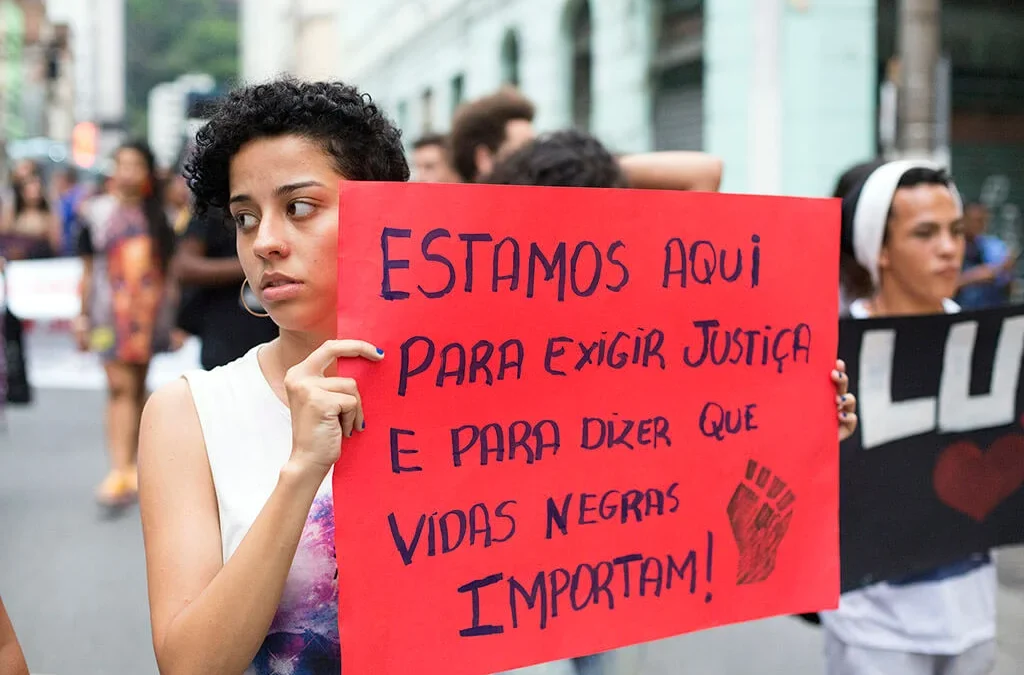 ESTAMOS AQUI
PARA EXIGIR JUSTIÇA
E PARA DIZER QUE
VIDAS NEGRAS
IMPORTAM!
LU